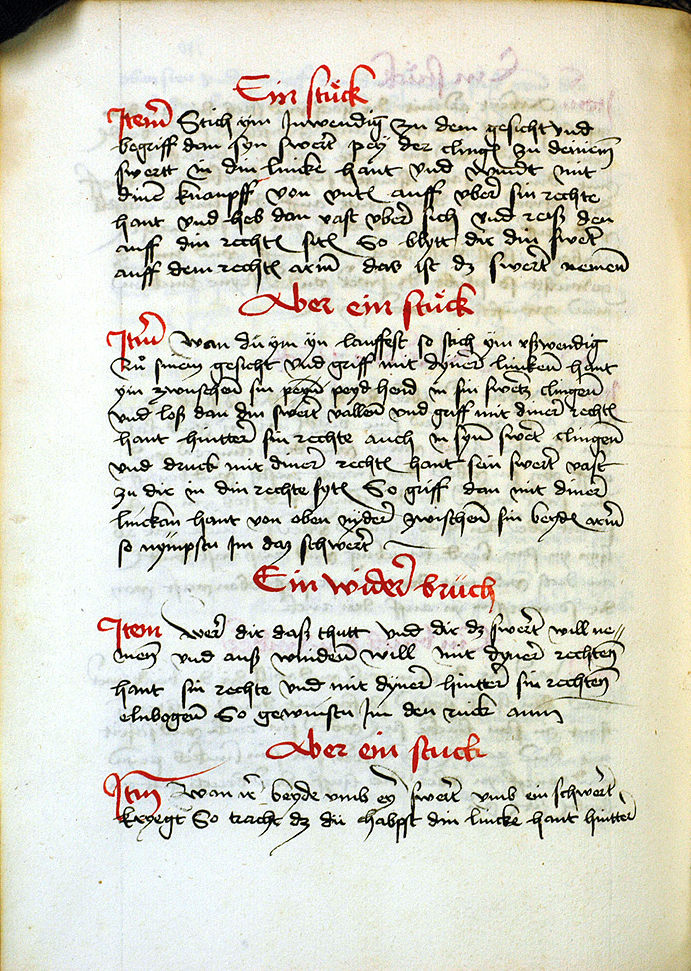 Ein stück
Item Stich ym Inwendig zu dem gesicht vnd
begriff dan syn swert pey der clingen zu deinem
swertt in din lincke hant vnd windt mit
dinem knaupff von vnten auff vber sin rechte
hant vnd heb dan vast vber sich vnd reiß den
auff din rechten siten So blytt dir din swert
auff dem rechten arm das ist dz swert nemen
Aber ein stück
Item wan dü ym yn lauffest so stich ym vßwendig
zu sinem gesicht vnd griff mit dyner lincken hant
ym zwuschen sin peyd hend in sin swertz clingen
vnd loß dan din swert vallen vnd griff mit diner rechten
hant hintter sin rechte auch in syn swert clingen
vnd druck mit diner rechten hant sein swert vast
zu dir in din rechte syten So griff dan mit diner
linckan hant von oben nyder zwischen sin beyde arm
so nympstu Im daz schwert
Ein wider brüch
Item wer dir daß thutt vnd dir dz swert will ne=
men vnd auß winden will mit dyner rechten
hant sin rechte vnd mit dyner hintter sin rechten
elnbogen So gewinstu Im den ruck ann
Aber ein stuck
Item wan ir beyde vmb ey swert vmb ein schwert
kryegt So tracht dz dü habpst din lincke hant hintter